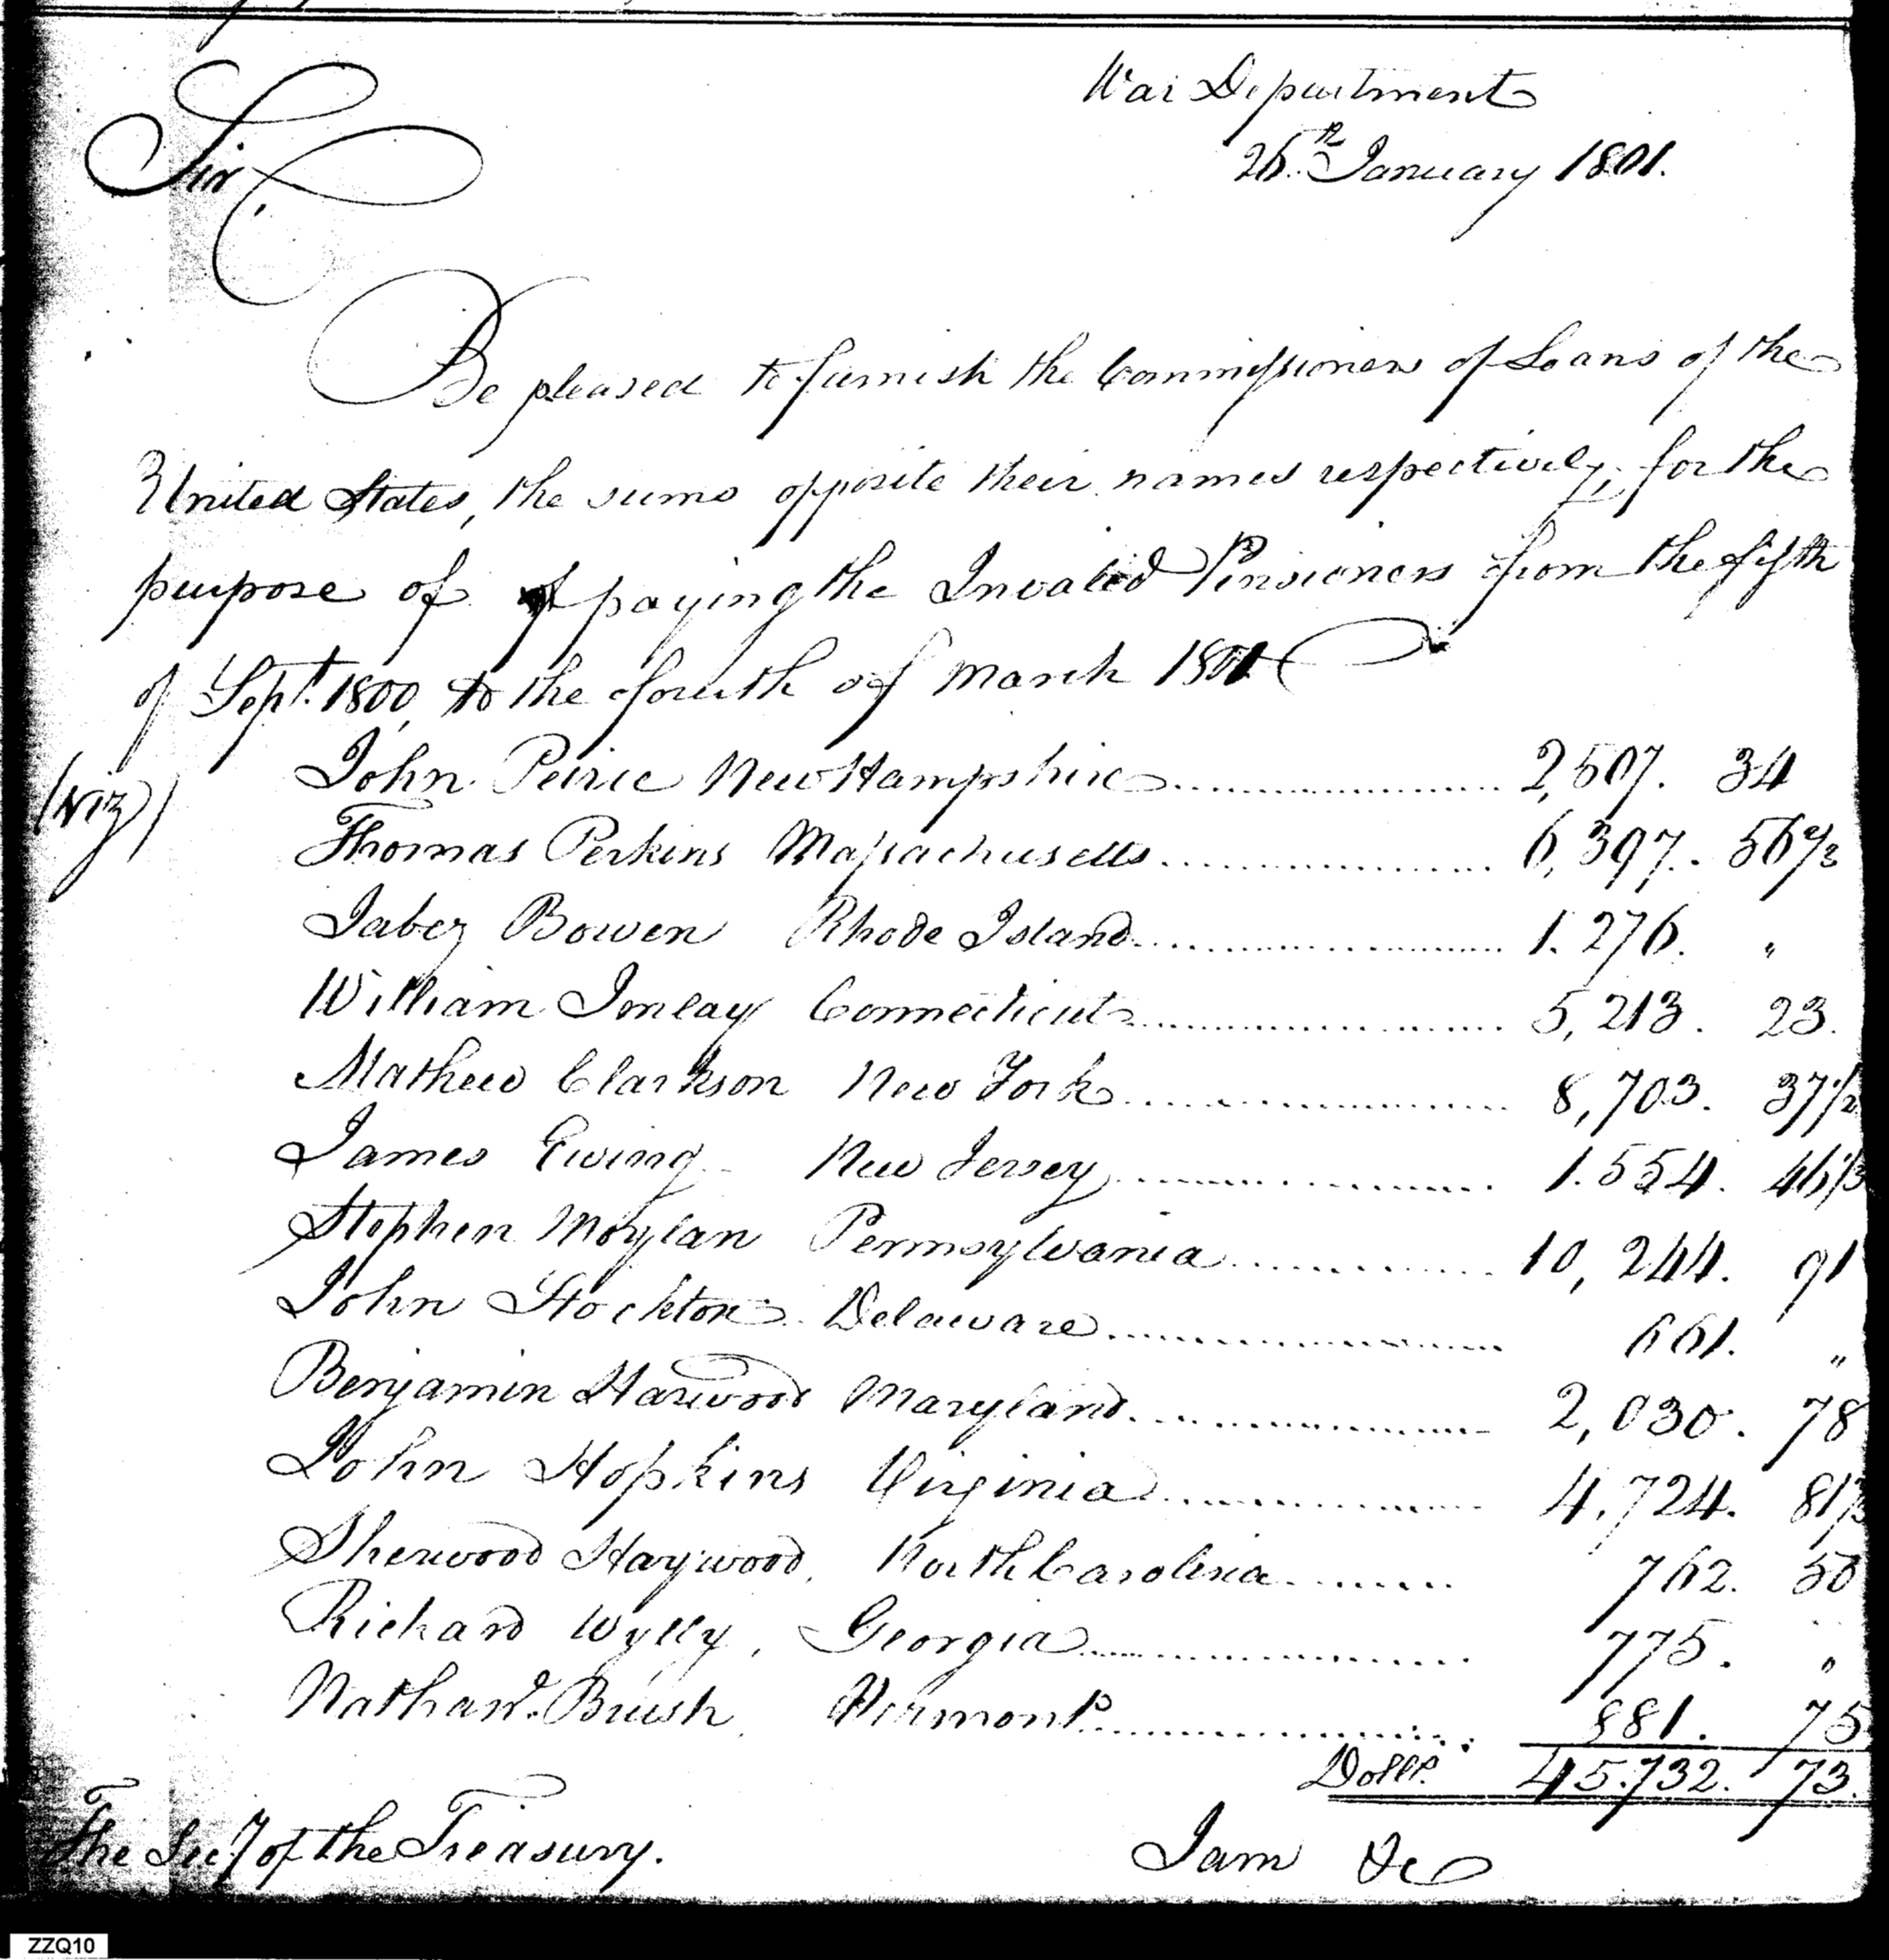 War Department
26th January 1801.
Sir,
Be pleased to furnish the Commissioners of Loans of the
United States, the sums opposite their names respectively, for the
purpose of paying the Invalid Pensioners from the fifth
of Sept. 1800, to the fourth of March 1801
(viz) John Peirce New Hampshire 2,507. 34
Thomas Perkins Massachusetts 6,397. 56 2/3
Jabez Bowen Rhode Island 1.276. "
William Imlay Connecticut 5,213. 23.
Mathew Clarkson New York 8,703. 37 1/2
James Ewing New Jersey 1.554. 46 1/3
Stephen Moylan Pennsylvania 10,244. 91
John Stockton Delaware 661. "
Benjamin Harwood Maryland 2,030. 78
John Hopkins Virginia 4.724. 81 1/3
Sherwood Haywood, North Carolina 762. 50
Richard Wylly, Georgia 775. "
Nathan.l Brush, Vermont 881. 75
Dolls. 45.732. 73.
The Secy of the Treasury. I am &c
ZZQ10